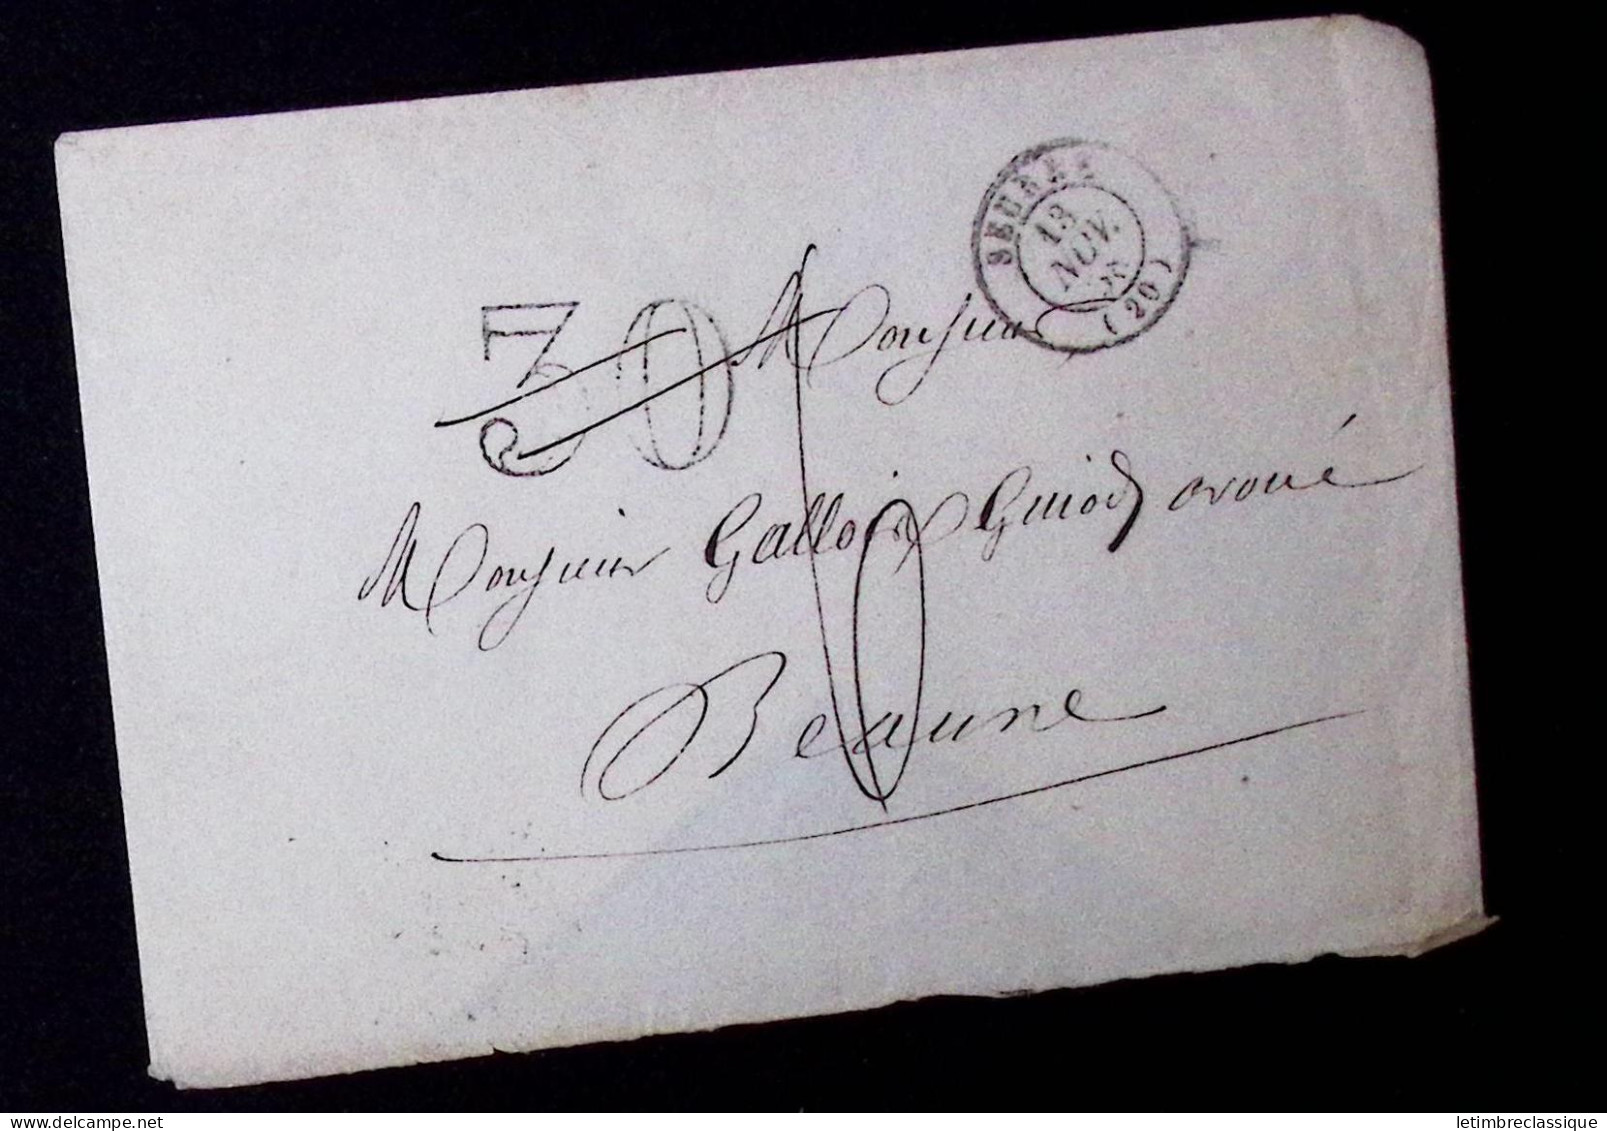 SEURRE
13
NOV.
(20)
30
Monsieur
Monsieur Gallois Guiod avoué
Beaune
letimbreclassique